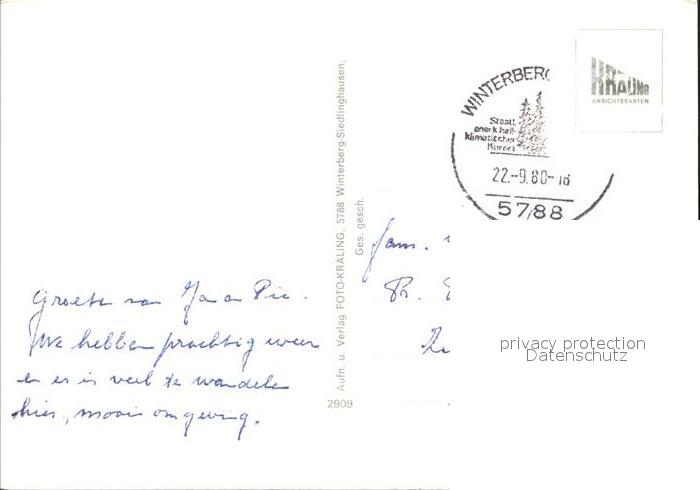 WINTERBERG
Staatl.
anerk. heil-
klimatischer
Kurort
22.-9.80-18
5788
KRÄLING
ANSICHTSKARTEN
Aufn. u. Verlag FOTO-KRÄLING, 5788 Winterberg-Siedlinghausen,
Ges. gesch.
2909
Fam.
Groeten van Ja en Pie.
We hebben prachtig weer
en er is veel te wandelen
hier, mooie omgeving.
privacy protection
Datenschutz